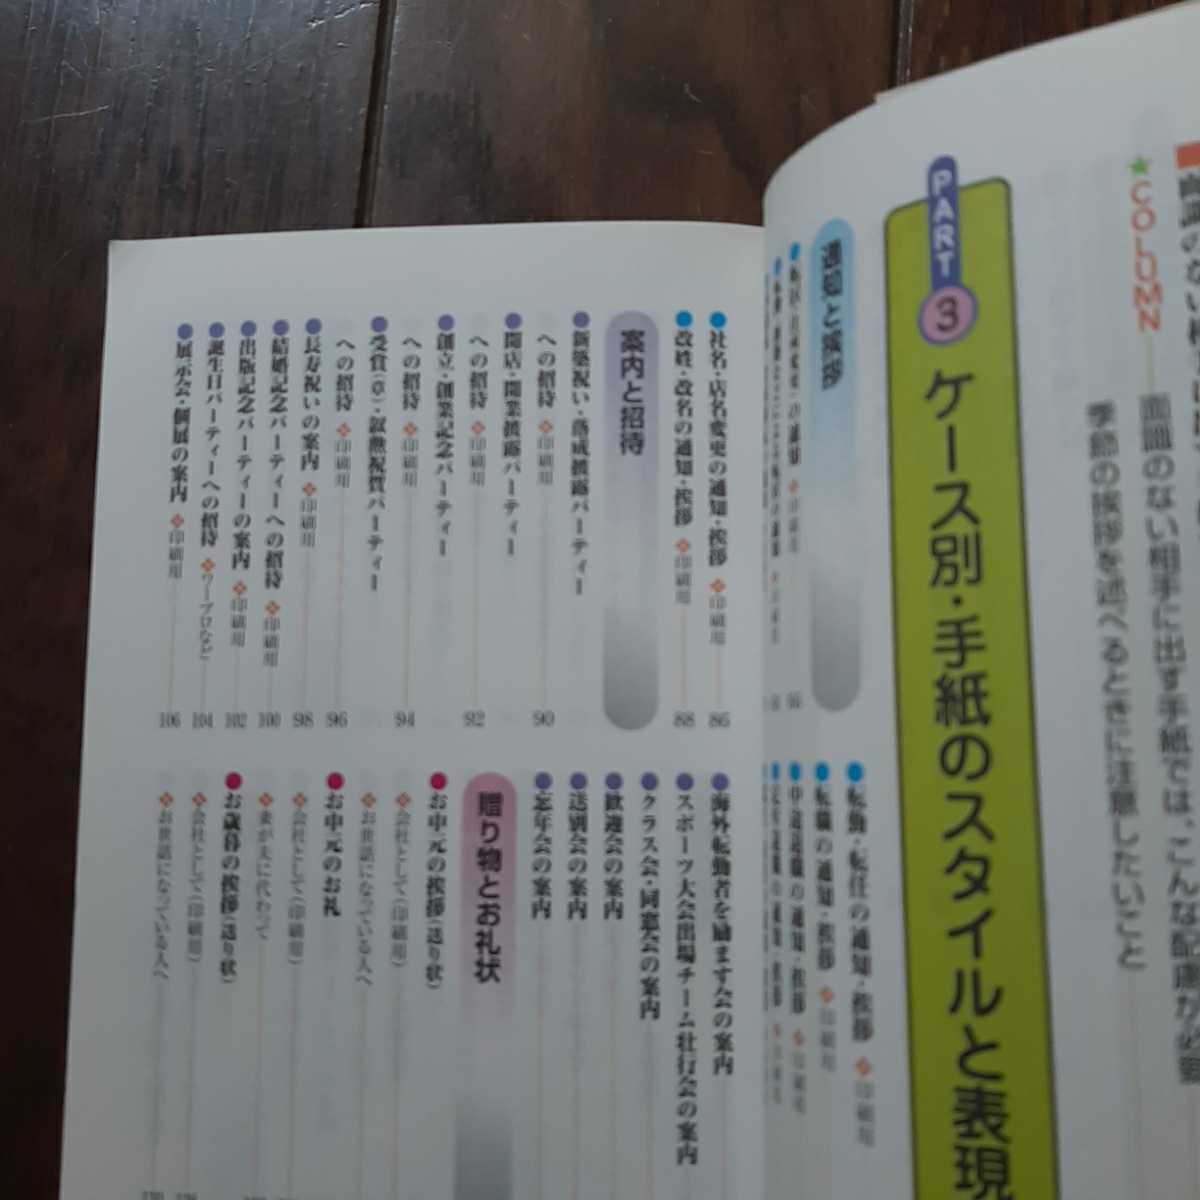 ★COLUMN
面識のない相手に出す手紙では、こんな配慮が必要
季節の挨拶を述べるときに注意したいこと
PART 3 ケース別・手紙のスタイルと表現
通知と挨拶
●転勤・転任の通知・挨拶 印刷用
●転職の通知・挨拶 印刷用
●中途退職の通知・挨拶 印刷用
●社名・店名変更の通知・挨拶 印刷用 86
●改姓・改名の通知・挨拶 印刷用 88
案内と招待
●新築祝い・落成披露パーティー
への招待 印刷用 90
●開店・開業披露パーティー
への招待 印刷用 92
●創立・創業記念パーティー
への招待 印刷用 94
●受賞(章)・叙勲祝賀パーティー
への招待 印刷用 96
●長寿祝いの案内 印刷用 98
●結婚記念パーティーへの招待 印刷用 100
●出版記念パーティーの案内 印刷用 102
●誕生日パーティーへの招待 ワープロなど 104
●展示会・個展の案内 印刷用 106
●海外転勤者を励ます会の案内
●スポーツ大会出場チーム壮行会の案内
●クラス会・同窓会の案内
●歓迎会の案内
●送別会の案内
●忘年会の案内
贈り物とお礼状
●お中元の挨拶(送り状)
会社として(印刷用)
お世話になっている人へ
●お中元のお礼
会社として(印刷用)
妻が夫に代わって
●お歳暮の挨拶(送り状)
会社として(印刷用)
お世話になっている人へ